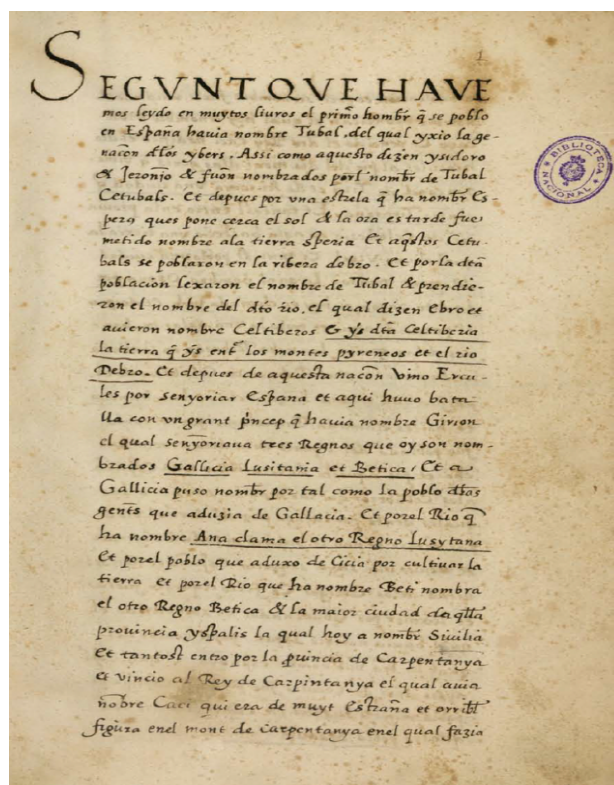 1
SEGVNT QVE HAVE
mos leydo en muytos liuros el primo hombr q̃ se poblo
en España hauia nombre Tubal, del qual yxio la ge-
nacõn dlos ybers. Assi como aquesto dizen ysidoro
& Jeronjo & fuõn nombrados porl nombr de Tubal
Cetubals. Et depues por vna estrela q̃ ha nombr Es-
pero ques pone cerca el sol & la ora es tarde fue
metido nombre ala tierra speria Et aq̃stos Cetu-
bals se poblaron en la ribera debro. Et por la dtã
poblacion lexaron el nombre de Tubal & prendie-
ron el nombre del dto rio, el qual dizen Ebro et
auieron nombre Celtiberos & ys dtã Celtiberia
la tierra q̃ ys ent los montes pyreneos et el rio
Debro. Et depues de aquesta nacõn vino Ercu-
les por senyoriar Espana et aqui huuo bata
lla con vn grant p̃ncep q̃ hauia nombre Girion
el qual senyoriaua tres Regnos que oy son nom-
brados Gallicia Lusitania et Betica, Et a
Gallicia puso nombr por tal como la poblo dlas
gents que aduzia de Gallacia. Et porel Rio q̃
ha nombre Ana clama el otro Regno Lusytana
Et porel poblo que aduxo de Cicia por cultiuar la
tierra Et porel Rio que ha nombre Beti nombra
el otro Regno Betica & la maior ciudad de aq̃lla
prouincia yspalis la qual hoy a nombr Siuilia
Et tantost entro por la p̃uincia de Carpentanya
Et vincio al Rey de Carpintanya el qual auia
nõbre Caci qui era de muyt estraña et orribl
figura enel mont de Carpentanya enel qual fazia
BIBLIOTECA NACIONAL